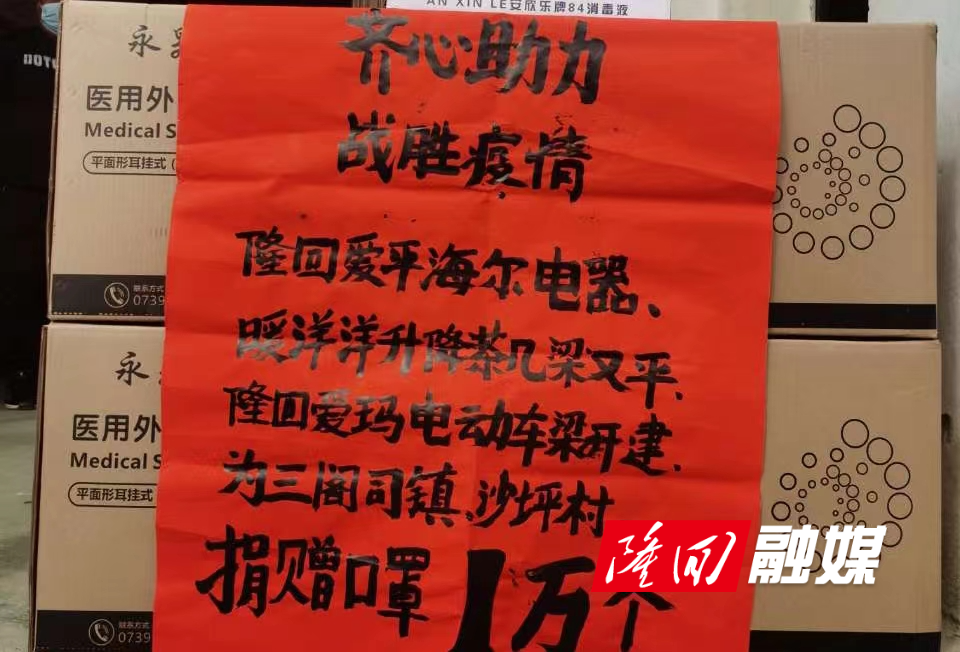 AN XIN LE安欣乐牌84消毒液
齐心助力
战胜疫情
隆回爱平海尔电器、
暖洋洋升降茶几梁又平、
隆回爱玛电动车梁开建、
为三阁司镇、沙坪村
捐赠口罩1万个
永
医用外
Medical S
平面形耳挂式
联系方式
0739
永
医用外
Medical S
平面形耳挂式
联系方式
0739
隆回融媒